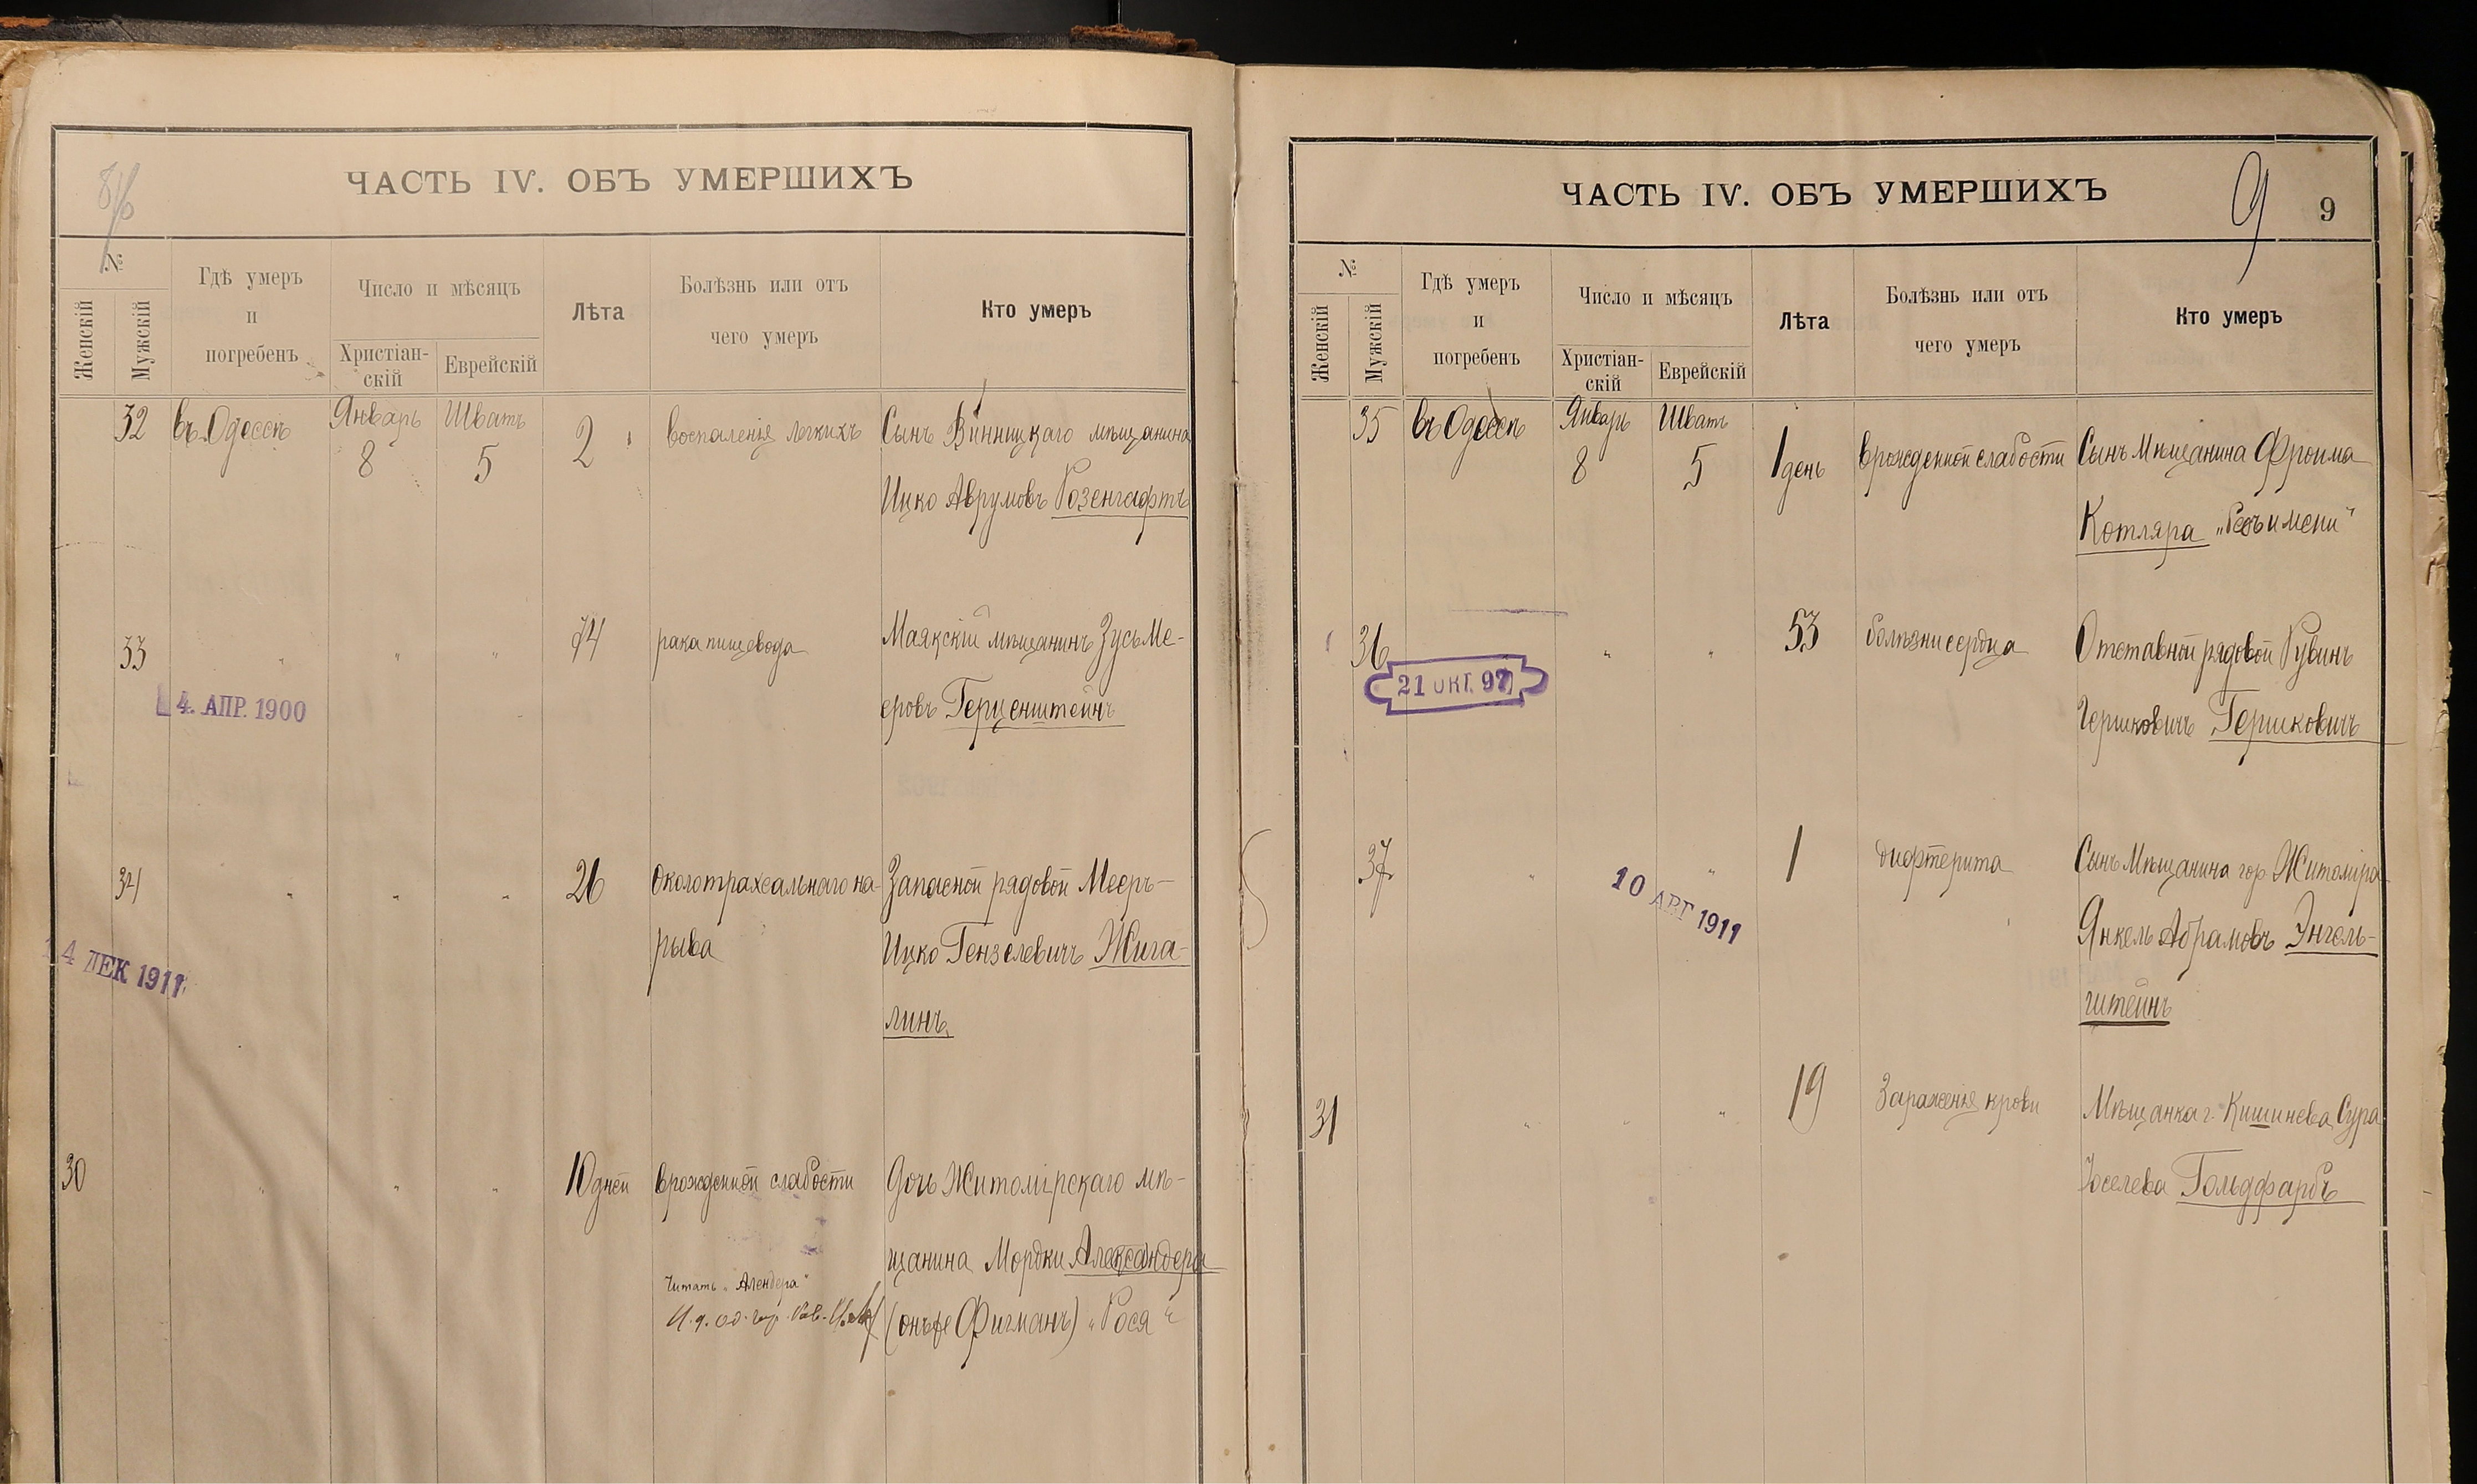 ЧАСТЬ IV. ОБЪ УМЕРШИХЪ
№
Женскій
Мужскій
Гдѣ умеръ
и
погребенъ
Число и мѣсяцъ
Христіан-
скій
Еврейскій
Лѣта
Болѣзнь или отъ
чего умеръ
Кто умеръ
32 въ Одессѣ Январь 8 Шватъ 5 2 воспаленія легкихъ Сынъ Винницкаго мѣщанина
Ицко Аврумовъ Розенгафтъ
33 " " " 74 рака пищевода Маякскій мѣщанинъ Зусь Ме-
еровъ Герценштейнъ
4. АПР. 1900
34 " " " 26 Околотрахеальнаго на- Запасной рядовой Мееръ-
рыва Ицко Гензелевичъ Жига-
линъ
14 ДЕК 1911
30 " " " 10 дней врожденной слабости Дочь Житомірскаго мѣ-
щанина Мордки Александера
Читать „Алендера"
(онъ же Фигманъ) „Рося"
ЧАСТЬ IV. ОБЪ УМЕРШИХЪ
9 9
№
Женскій
Мужскій
Гдѣ умеръ
и
погребенъ
Число и мѣсяцъ
Христіан-
скій
Еврейскій
Лѣта
Болѣзнь или отъ
чего умеръ
Кто умеръ
35 въ Одессѣ Январь 8 Шватъ 5 1 день врожденной слабости Сынъ Мѣщанина Фроима
Котляра „Безъ имени"
36 " " 53 болѣзни сердца Отставной рядовой Рувинъ
Гершковичъ Гершковичъ
21 ОКТ. 97
37 " " 1 дифтерита Сынъ Мѣщанина гор. Житоміра
Янкель Абрамовъ Энгель-
штейнъ
10 АВГ 1911
31 " " " 19 Зараженія крови Мѣщанка г. Кишинева Сура
Іоселева Гольдфарбъ